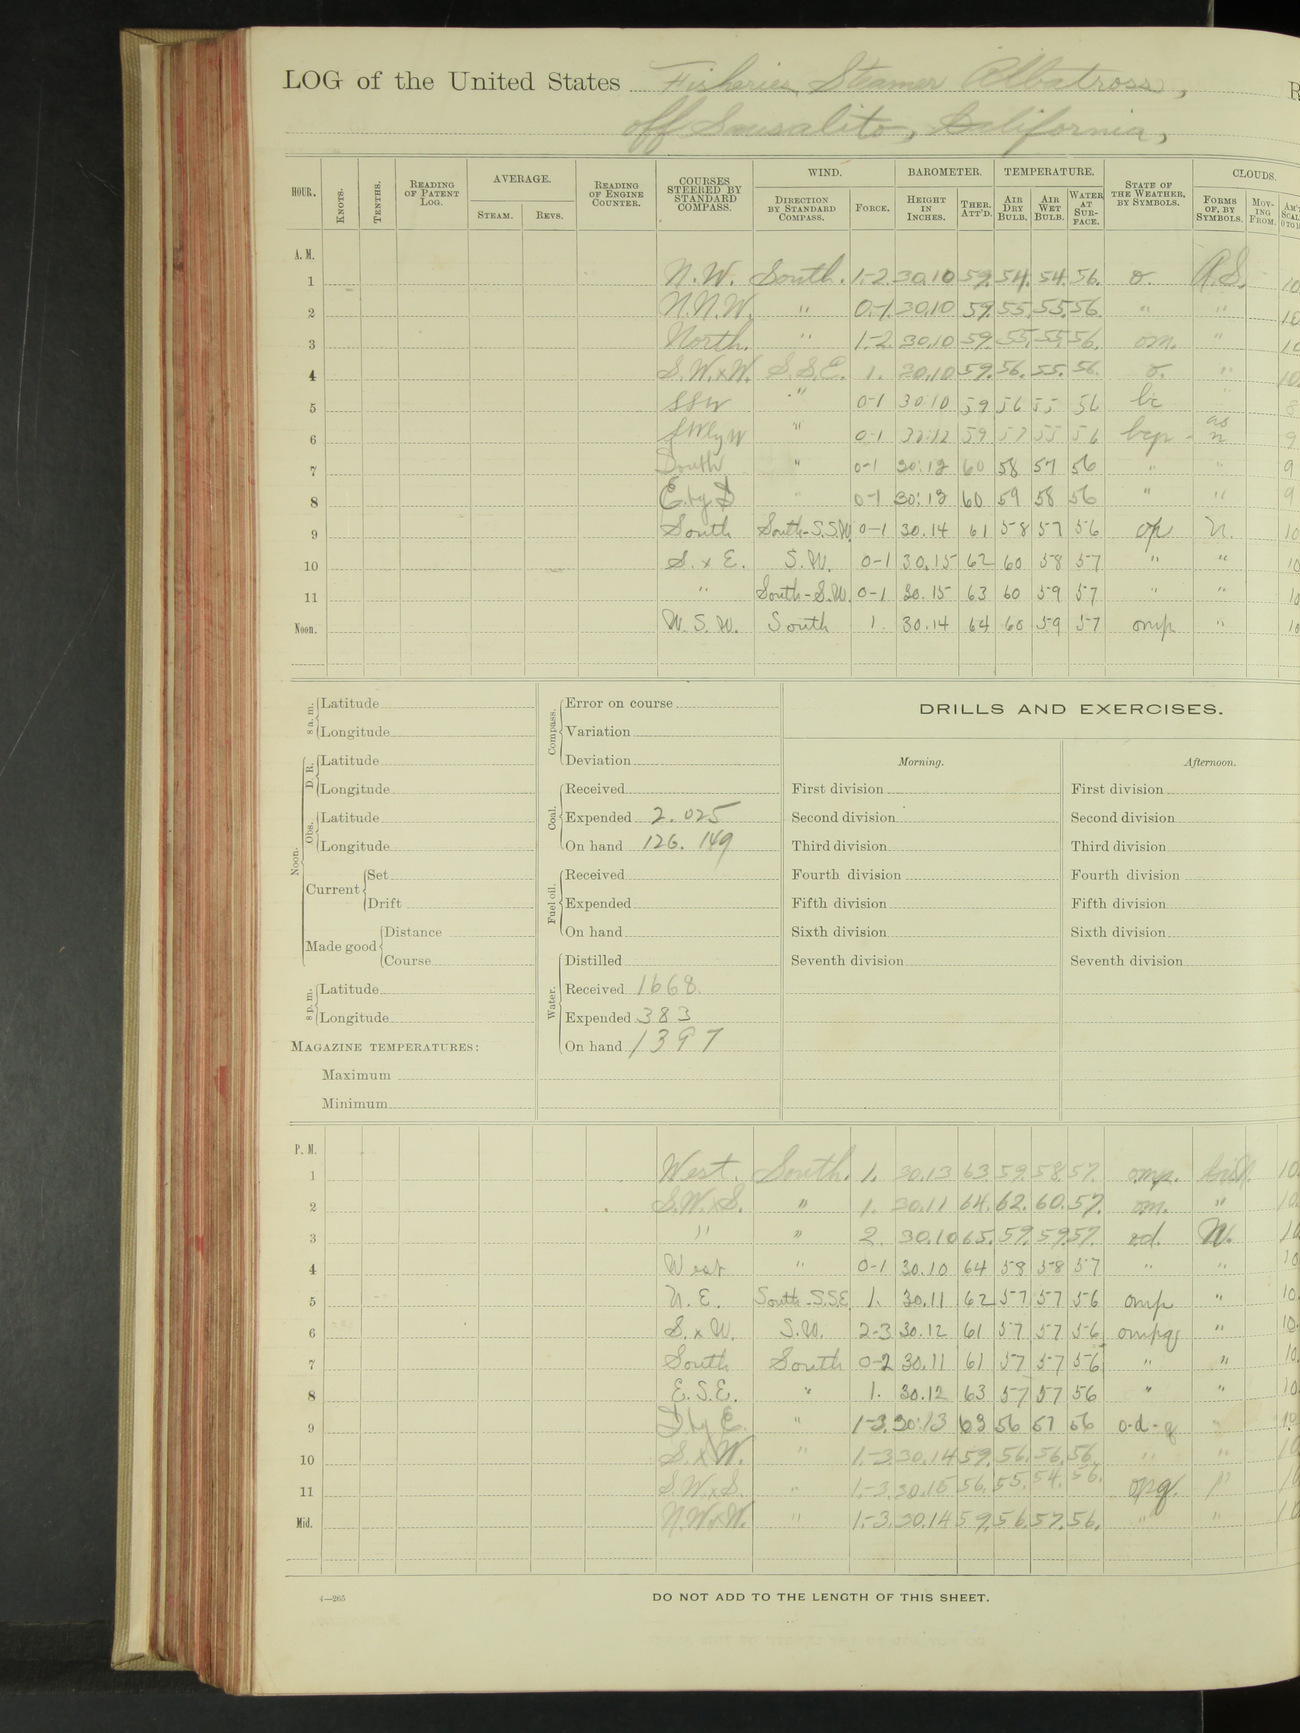 LOG of the United States Fisheries Steamer Albatross, R
off Sausalito, California,
HOUR. KNOTS. TENTHS. READING OF PATENT LOG. AVERAGE. STEAM. REVS. READING OF ENGINE COUNTER. COURSES STEERED BY STANDARD COMPASS. WIND. DIRECTION BY STANDARD COMPASS. FORCE. BAROMETER. HEIGHT IN INCHES. THER. ATT'D. TEMPERATURE. AIR DRY BULB. AIR WET BULB. WATER AT SUR-FACE. STATE OF THE WEATHER, BY SYMBOLS. CLOUDS. FORMS OF, BY SYMBOLS. MOV-ING FROM.
A. M.
1 N.W. South. 1-2. 30.10 59. 54. 54. 56. o. A.S. 10
2 N.N.W. " 0-1. 30.10 59. 55. 55. 56. " " 10
3 North. " 1-2. 30.10 59. 55. 55. 56. om. " 10
4 S.W.xW. S.S.E. 1. 30.10 59. 56. 55. 56. o. " 10.
5 SSW " 0-1 30:10 59 56 55 56 bc " 8
6 SWlyW " 0-1 30:12 59 57 55 56 bcp as n 9
7 South " 0-1 30:12 60 58 57 56 " " 9
8 E. by S " 0-1 30:12 60 59 58 56 " " 9
9 South South-S.S.W. 0-1 30.14 61 58 57 56 op N. 10
10 S. x E. S.W. 0-1 30.15 62 60 58 57 " " 10
11 " South-S.W. 0-1 30.15 63 60 59 57 " " 10
Noon. W.S.W. South 1. 30.14 64 60 59 57 omp " 10
8 a. m. Latitude
Longitude
Noon. D. R. Latitude
Longitude
Obs. Latitude
Longitude
Current Set
Drift
Made good Distance
Course
8 p. m. Latitude
Longitude
MAGAZINE TEMPERATURES:
Maximum
Minimum
Compass. Error on course
Variation
Deviation
Coal. Received
Expended 2.025
On hand 126.149
Fuel oil. Received
Expended
On hand
Water. Distilled
Received 1668.
Expended 383
On hand 1397
DRILLS AND EXERCISES.
Morning. Afternoon.
First division First division
Second division Second division
Third division Third division
Fourth division Fourth division
Fifth division Fifth division
Sixth division Sixth division
Seventh division Seventh division
P. M.
1 West. South. 1. 30.13 63. 59. 58. 57. omp. 10.
2 S.W.xS. " 1. 30.11 64. 62. 60. 57. om. " 10.
3 " " 2. 30.10 65. 59. 59. 57. od. N. 10
4 West " 0-1 30.10 64 58 58 57 " " 10
5 N.E. South-S.S.E. 1. 30.11 62 57 57 56 omp " 10.
6 S. x W. S.W. 2-3 30.12 61 57 57 56 ompq " 10.
7 South South 0-2 30.11 61 57 57 56 " " 10.
8 E.S.E. " 1. 30.12 63 57 57 56 " " 10.
9 S by E. " 1-3. 30:13 63 56 57 56 o-d-q " 10.
10 S.xW. " 1.-3. 30.14 59. 56. 56. 56. " " 10
11 S.W.xS. " 1.-3. 30.15 56. 55. 54. 56. opq. " 10
Mid. N.W.xW. " 1.-3. 30.14 59. 56. 57. 56. " " 10
4—265
DO NOT ADD TO THE LENGTH OF THIS SHEET.